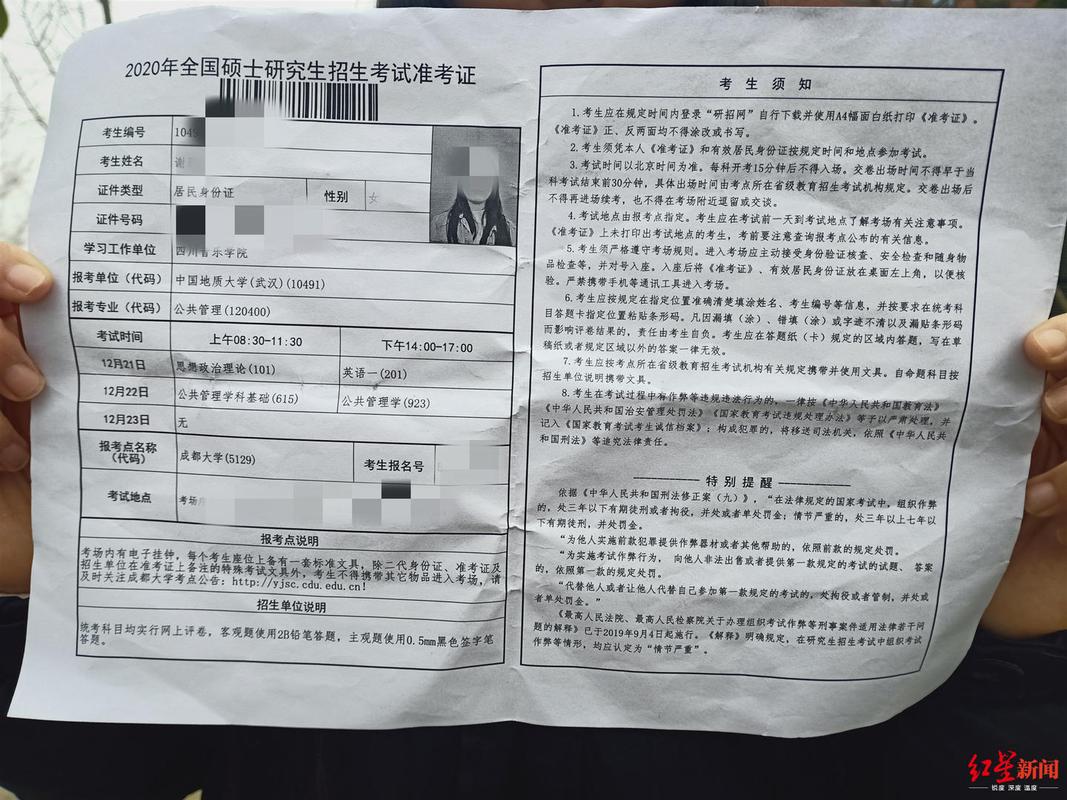 2020年全国硕士研究生招生考试准考证
考生编号 1049
考生姓名 谢
证件类型 居民身份证 性别 女
证件号码
学习工作单位 四川音乐学院
报考单位（代码） 中国地质大学(武汉)(10491)
报考专业（代码） 公共管理(120400)
考试时间 上午08:30-11:30 下午14:00-17:00
12月21日 思想政治理论(101) 英语一(201)
12月22日 公共管理学科基础(615) 公共管理学(923)
12月23日 无
报考点名称
（代码） 成都大学(5129) 考生报名号
考试地点 考场
报考点说明
考场内有电子挂钟，每个考生座位上备有一套标准文具，除二代身份证、准考证及
招生单位在准考证上备注的特殊考试文具外，考生不得携带其它物品进入考场，请
及时关注成都大学考点公告：http://yjsc.cdu.edu.cn！
招生单位说明
统考科目均实行网上评卷，客观题使用2B铅笔答题，主观题使用0.5mm黑色签字笔
答题。
考生须知
1.考生应在规定时间内登录“研招网”自行下载并使用A4幅面白纸打印《准考证》。
《准考证》正、反两面均不得涂改或书写。
2.考生须凭本人《准考证》和有效居民身份证按规定时间和地点参加考试。
3.考试时间以北京时间为准。每科开考15分钟后不得入场。交卷出场时间不得早于当
科考试结束前30分钟，具体出场时间由考点所在省级教育招生考试机构规定。交卷出场后
不得再进场续考，也不得在考场附近逗留或交谈。
4.考试地点由报考点指定。考生应在考试前一天到考试地点了解考场有关注意事项。
《准考证》上未打印出考试地点的考生，考前要注意查询报考点公布的有关信息。
5.考生须严格遵守考场规则。进入考场应主动接受身份验证核查、安全检查和随身物
品检查等，并对号入座。入座后将《准考证》、有效居民身份证放在桌面左上角，以便核
验。严禁携带手机等通讯工具进入考场。
6.考生应按规定在指定位置准确清楚填涂姓名、考生编号等信息，并按要求在统考科
目答题卡指定位置粘贴条形码。凡因漏填（涂）、错填（涂）或字迹不清以及漏贴条形码
而影响评卷结果的，责任由考生自负。考生应在答题纸（卡）规定的区域内答题，写在草
稿纸或者规定区域以外的答案一律无效。
7.考生应按考点所在省级教育招生考试机构有关规定携带并使用文具。自命题科目按
招生单位说明携带文具。
8.考生在考试过程中有作弊等违规违法行为的，一律按《中华人民共和国教育法》
《中华人民共和国治安管理处罚法》《国家教育考试违规处理办法》等予以严肃处理，并
记入《国家教育考试考生诚信档案》；构成犯罪的，将移送司法机关，依照《中华人民共
和国刑法》等追究法律责任。
特别提醒
依据《中华人民共和国刑法修正案（九）》，“在法律规定的国家考试中，组织作弊
的，处三年以下有期徒刑或者拘役，并处或者单处罚金；情节严重的，处三年以上七年以
下有期徒刑，并处罚金。
“为他人实施前款犯罪提供作弊器材或者其他帮助的，依照前款的规定处罚。
“为实施考试作弊行为，向他人非法出售或者提供第一款规定的考试的试题、答案
的，依照第一款的规定处罚。
“代替他人或者让他人代替自己参加第一款规定的考试的，处拘役或者管制，并处或
者单处罚金。”
《最高人民法院、最高人民检察院关于办理组织考试作弊等刑事案件适用法律若干问
题的解释》已于2019年9月4日起施行。《解释》明确规定，在研究生招生考试中组织考试
作弊等情形，均应认定为“情节严重”。
红星新闻
锐度 深度 温度